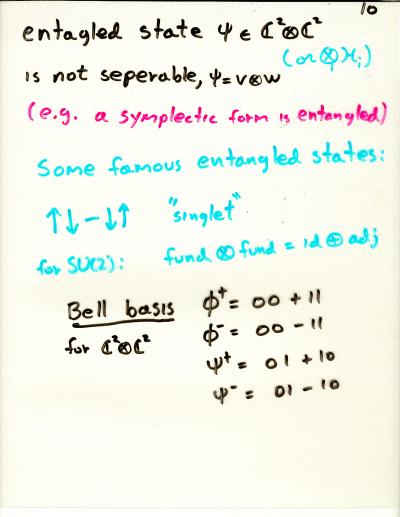 10
entagled state ψ ∈ ℂ²⊗ℂ²
(or ⊗ᵢ ℋᵢ)
is not seperable, ψ=v⊗w
(e.g. a symplectic form is entangled)
Some famous entangled states:
↑↓-↓↑ "singlet"
for SU(2): fund ⊗ fund = id ⊕ adj
Bell basis
for ℂ²⊗ℂ²
φ⁺= 00 + 11
φ⁻= 00 - 11
ψ⁺= 01 + 10
ψ⁻= 01 - 10